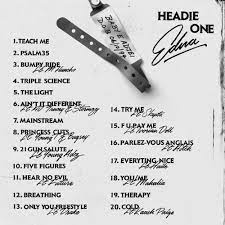 HEADIE
ONE
Edna
1. TEACH ME
2. PSALM35
3. BUMPY RIDE
ft. M Huncho
4. TRIPLE SCIENCE
5. THE LIGHT
6. AIN'T IT DIFFERENT
ft. AJ Tracey & Stormzy
7. MAINSTREAM
8. PRINCESS CUTS
ft. Young T & Bugsey
9. 21 GUN SALUTE
ft. Young Adz
10. FIVE FIGURES
11. HEAR NO EVIL
ft. Future
12. BREATHING
13. ONLY YOU FREESTYLE
ft. Drake
14. TRY ME
ft. Skepta
15. F U PAY ME
ft. Ivorian Doll
16. PARLEZ-VOUS ANGLAIS
ft. Aitch
17. EVERYTING NICE
ft. Haile
18. YOU/ME
ft. Mahalia
19. THERAPY
20. COLD
ft. Kaash Paige